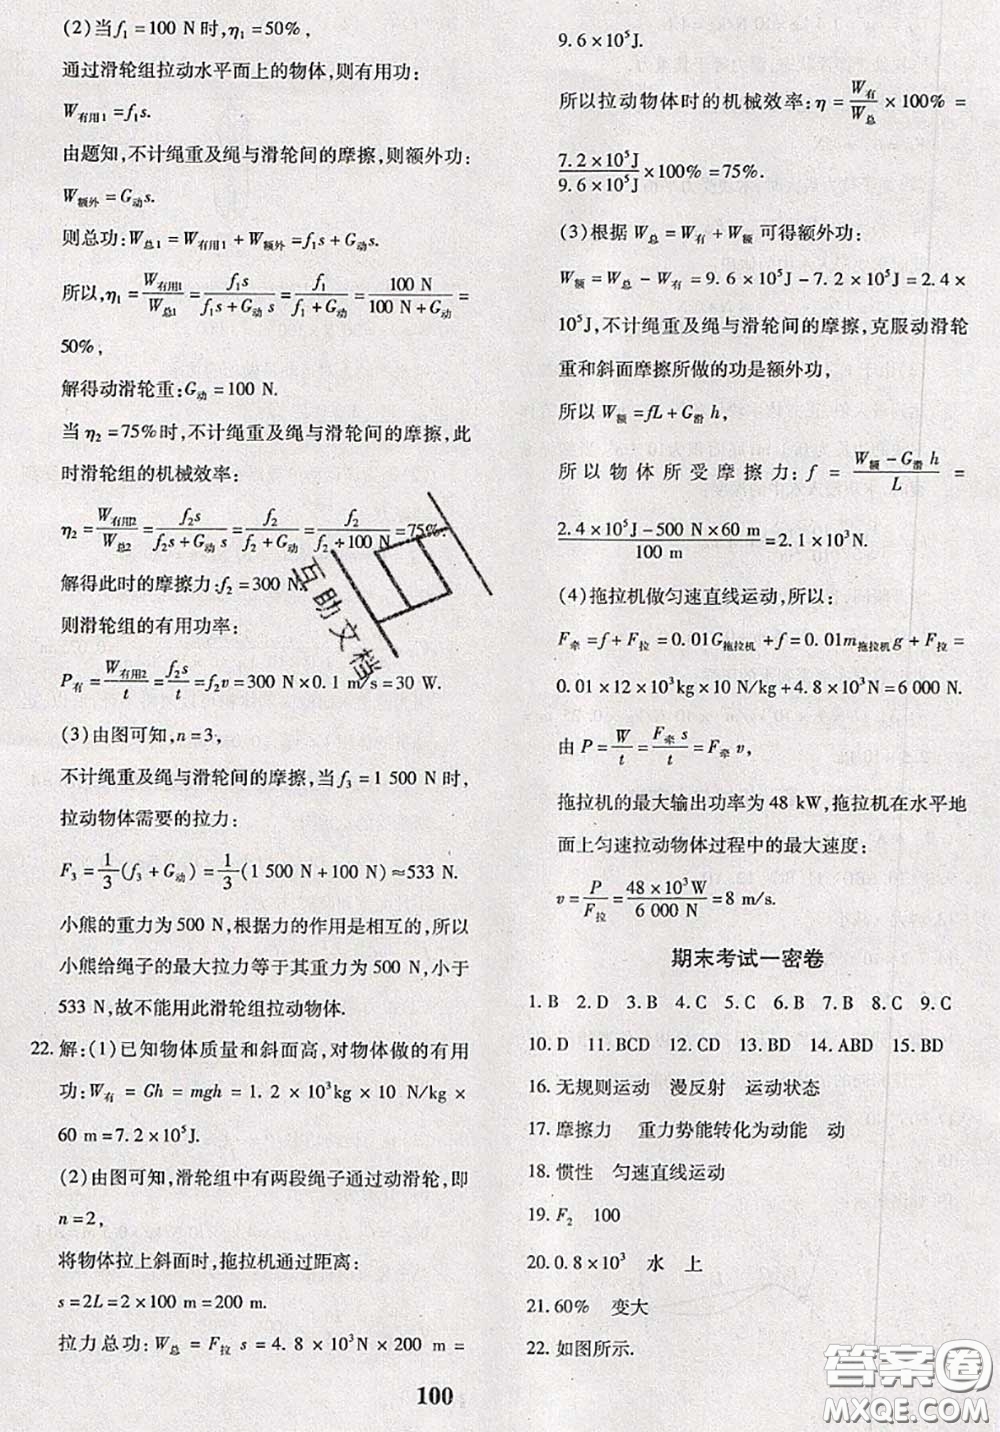 (2)当f₁=100 N时,η₁=50%,
通过滑轮组拉动水平面上的物体,则有用功:
W有用1=f₁s.
由题知,不计绳重及绳与滑轮间的摩擦,则额外功:
W额外=G动s.
则总功:W总1=W有用1+W额外=f₁s+G动s.
所以,η₁=W有用1/W总1=f₁s/(f₁s+G动 s)=f₁/(f₁+G动)=100 N/(100 N+G动)=
50%,
解得动滑轮重:G动=100 N.
当η₂=75%时,不计绳重及绳与滑轮间的摩擦,此
时滑轮组的机械效率:
η₂=W有用2/W总2=f₂s/(f₂s+G动 s)=f₂/(f₂+G动)=f₂/(f₂+100 N)=75%.
解得此时的摩擦力:f₂=300 N.
则滑轮组的有用功率:
P有=W有用2/t=f₂s/t=f₂v=300 N×0.1 m/s=30 W.
(3)由图可知,n=3,
不计绳重及绳与滑轮间的摩擦,当f₃=1 500 N时,
拉动物体需要的拉力:
F₃=1/3(f₃+G动)=1/3(1 500 N+100 N)≈533 N.
小熊的重力为500 N,根据力的作用是相互的,所以
小熊给绳子的最大拉力等于其重力为500 N,小于
533 N,故不能用此滑轮组拉动物体.
22.解:(1)已知物体质量和斜面高,对物体做的有用
功:W有=Gh=mgh=1.2×10³kg×10 N/kg×
60 m=7.2×10⁵J.
(2)由图可知,滑轮组中有两段绳子通过动滑轮,即
n=2,
将物体拉上斜面时,拖拉机通过距离:
s=2L=2×100 m=200 m.
拉力总功:W总=F拉 s=4.8×10³N×200 m=
9.6×10⁵J.
所以拉动物体时的机械效率:η=W有/W总×100%=
7.2×10⁵J/9.6×10⁵J×100%=75%.
(3)根据W总=W有+W额可得额外功:
W额=W总-W有=9.6×10⁵J-7.2×10⁵J=2.4×
10⁵J,不计绳重及绳与滑轮间的摩擦,克服动滑轮
重和斜面摩擦所做的功是额外功,
所以W额=fL+G滑 h,
所以物体所受摩擦力:f=(W额-G滑 h)/L=
(2.4×10⁵J-500 N×60 m)/100 m=2.1×10³N.
(4)拖拉机做匀速直线运动,所以:
F牵=f+F拉=0.01G拖拉机+f=0.01m拖拉机g+F拉=
0.01×12×10³kg×10 N/kg+4.8×10³N=6 000 N.
由P=W/t=F牵 s/t=F牵 v,
拖拉机的最大输出功率为48 kW,拖拉机在水平地
面上匀速拉动物体过程中的最大速度:
v=P/F拉=48×10³W/6 000 N=8 m/s.
期末考试一密卷
1.B 2.D 3.B 4.C 5.C 6.B 7.B 8.C 9.C
10.D 11.BCD 12.CD 13.BD 14.ABD 15.BD
16.无规则运动 漫反射 运动状态
17.摩擦力 重力势能转化为动能 动
18.惯性 匀速直线运动
19.F₂ 100
20.0.8×10³ 水 上
21.60% 变大
22.如图所示.
100
互助文档
答案圈
MXQE.COM